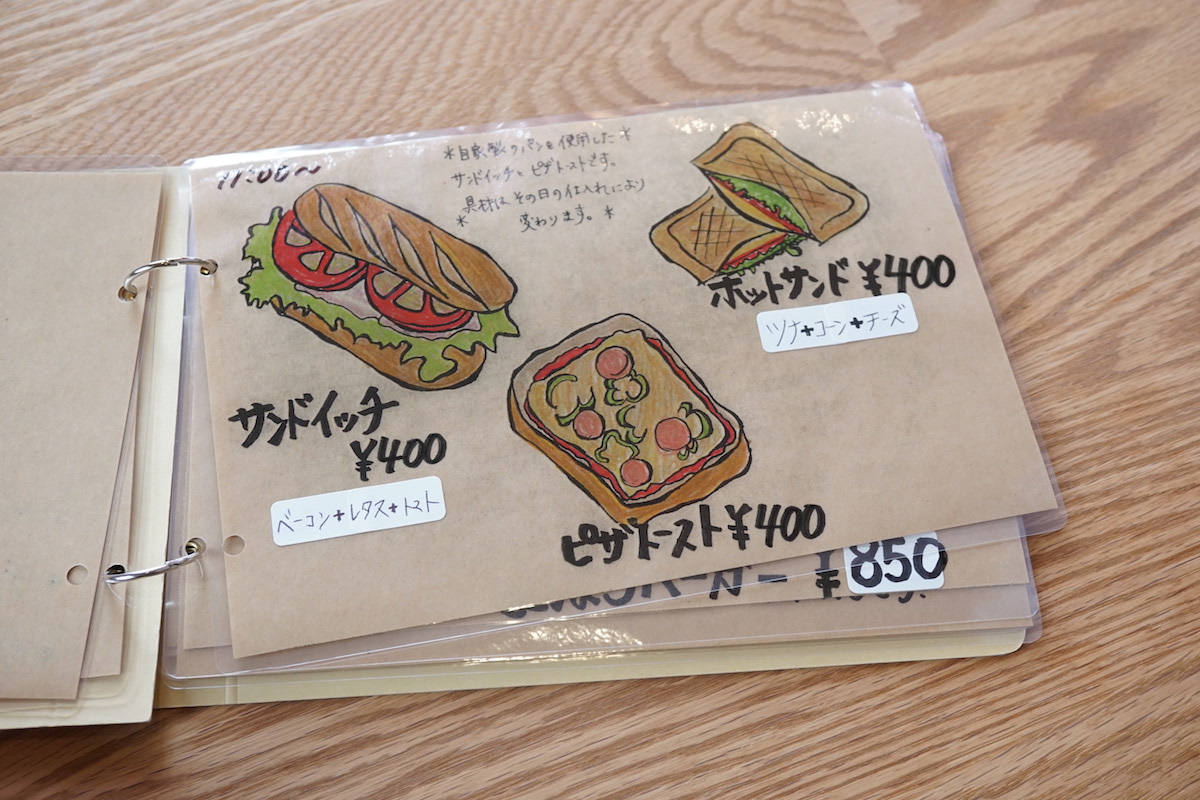 11:00〜
*自家製のパンを使用した*
サンドイッチとピザトーストです。
具材はその日の仕入れにより
* 変わります。*
ホットサンド ¥400
ツナ+コーン+チーズ
サンドイッチ
¥400
ベーコン+レタス+トマト
ピザトースト ¥400
バーガー ¥850